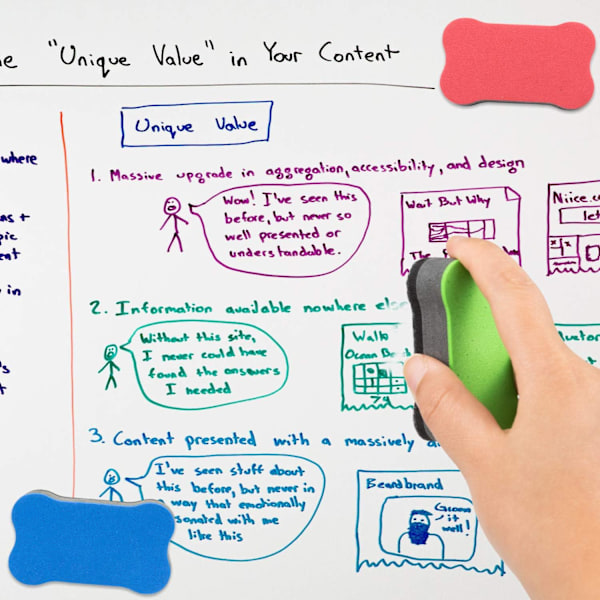 "Unique Value" in Your Content
where
Unique Value
1. Massive upgrade in aggregation, accessibility, and design
Wow! I've seen this
before, but never so
well presented or
understandable.
Wait But Why
The
2. Information available nowhere else
Without this site,
I never could have
found the answers
I needed
Walk
Ocean
3. Content presented with a massively
I've seen stuff about
this before, but never in
way that emotionally
with me
like this
Beardbrand
Groom
it
well!